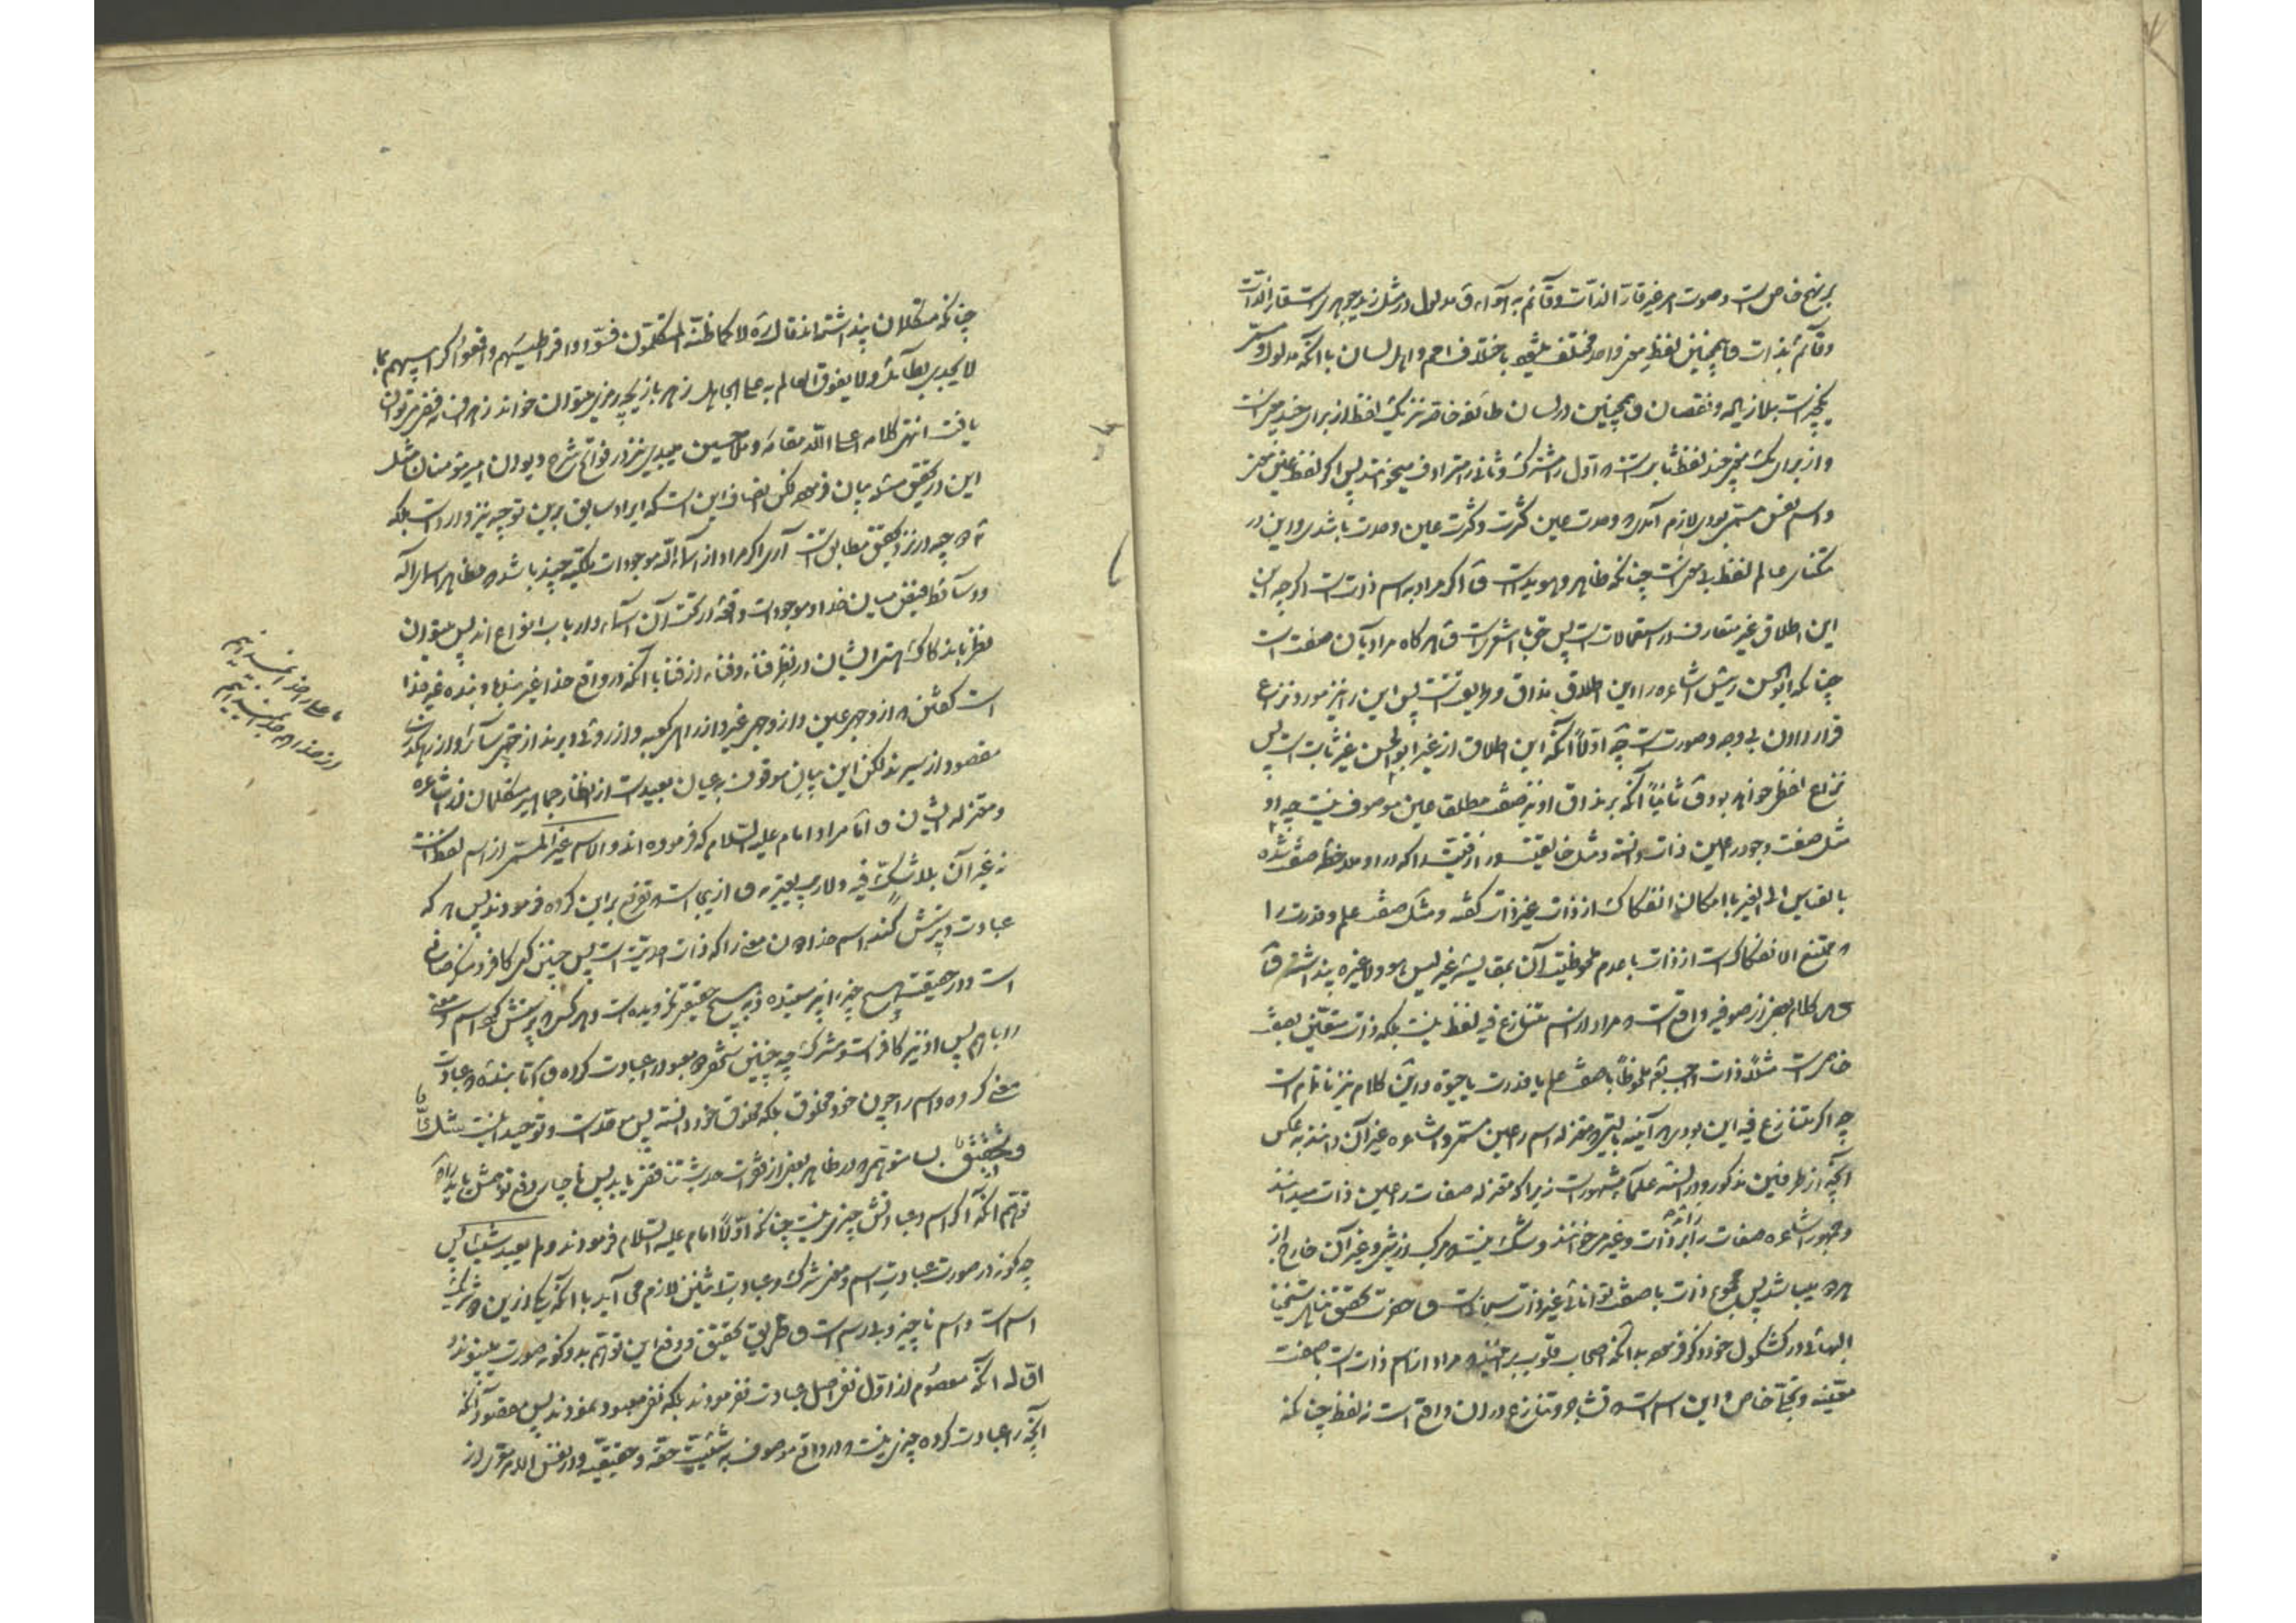 بر نهج خاص است و صوت امر غیر قارّ الذات و قائم به هواء و مدلول در مثل زید جوهریست قارّ الذات
و قائم بذات و همچنین لفظ معنی واحد مختلف میشود باختلاف امم و اهل لسان با آنکه مدلول و مسمّی
یکچیز است بلا زیاده و نقصان و همچنین در لسان طائفه خاصه نیز یک لفظ از برای چند معنی است
و از برای یک معنی چند لفظ ثابتست که اول را مشترک و ثانی را مترادف میخوانند پس اگر لفظ عین معنی
و اسم نفس مسمّی بودی لازم آمدی که وحدت عین کثرت و کثرت عین وحدت باشد و این در
تنگنای عالم لفظ بی معنی است چنانکه ظاهر و هویداست و اگر مراد به اسم ذات است اگرچه این
این اطلاق غیر متعارف در استعمالات است پس حق با اشعریست و هرگاه مراد بآن صفت است
چنانکه ابوالحسن رئیس اشاعره را این اطلاق مذاق و طریقتست پس این را نیز مورد نزاع
قرار دادن بی وجه و صورتست چه اوّلاً آنکه این اطلاق از غیر ابوالحسن غیر ثابت است پس
نزاع لفظی خواهد بود و ثانیاً آنکه بر مذاق او نیز صفت مطلقا عین موصوف نیست چه او
مثل صفت وجود را عین ذات دانسته و مثل خالقیت و رازقیت را که در او ملاحظه صفت شده
بالقیاس الی الغیر با امکان انفکاک از ذات غیر ذات گفته و مثل صفت علم و قدرت را
که ممتنع الانفکاک است از ذات با عدم ملحوظیت آن بمقایسه غیر لیس هو ولا غیره پنداشته و
کلام بعضی از صوفیه واقع است که مراد از اسم متنازع فیه لفظ نیست بلکه ذات متعیّن بصفت
خاص است مثلاً ذات واجب تعالی ملحوظاً با صفت علم یا قدرت یا حیوة و این کلام نیز ناتمام است
چه اگر متنازع فیه این بودی هر آینه بایستی که معتزله اسم را عین مسمّی و اشاعره غیر آن دانند به عکس
آنچه از طرفین مذکور و در السنه علما مشهور است زیرا که معتزله صفات را عین ذات میدانند
و جمهور اشاعره صفات را زائد بر ذات و غیر میخوانند و شک نیست که مرکب از شیء و غیر آن خارج از
هر دو میباشد پس مجموع ذات با صفت توانائی غیر ذات سبحانی است و حضرت محقق متأله شیخنا
البهائی در کشکول خود ذکر فرموده بدانکه اصحاب قلوب بر اینند که مراد از اسم ذات است با صفت
معیّنه و تجلّی خاص و این اسم است که تشاجر و تنازع در آن واقع است نه لفظ چنانکه
چنانکه متکلمان پنداشته‌اند قال لا کما ظنّه المتکلمون فسوّدوا قراطیسهم و افعموا کراریسهم بما
لا یجدی بطائل ولا یفوق العالم به علی الجاهل ز هر بازیچه رمزی میتوان خواند ز هر افسانه فیضی میتوان
یافت انتهی کلامه اعلی الله مقامه و ملا حسین میبدی نیز در فواتح شرح دیوان امیر مؤمنان مثل
این در تحقیق مسئله بیان فرموده لکن انصاف این است که ایراد سابق برین توجیه نیز وارد است بلکه
نه هر چه در نزد محقق مطابق است آری اگر مراد از اسماء الله موجودات ملکیه چند باشد که مظاهر اسماء اله
و وسائط فیض میان خدا و موجودات واقعه در تحت آن اسماء و ارباب انواع اند پس میتوان
نظر باندکاک هستی ایشان در نظر فناء و فناء از فنا با آنکه در واقع خدا غیر بنده و بنده غیر خدا
است گفتن که از وجهی عین و از وجهی غیر و از راهی کعبه و از روئی دیرند از جهتی سائر و از راهی
مقصود از سیرند لکن این بیان موقوف به عیان بعید است از انظار جماهیر متکلمان نه اشاعره
و معتزله ایشان و امّا مراد امام علیه السّلام که فرموده‌اند و الاسم غیر المسمّی از اسم لفظ است
نه غیر آن بلا شکّ فیه ولا ریب یعتریه و از اینجاست که تفریع بر این کرده فرمودند پس هر که
عبادت و پرستش کند اسم خدا را بدون معنی را که ذات احدیت است پس چنین کس کافر و
است و در حقیقت هیچ چیز را نپرستیده و به هیچ حقیقت نگرویده است و هر کس که پرستش کرد اسم و معنی
را با هم پس او نیز کافر است و مشرک چه چنین شخص دو معبود را عبادت کرده و امّا بنده که عبادت
معنی کرده و اسم را چون خود مخلوق بلکه مخلوق خود دانسته پس موحد است و توحید اینست بی شک
و تحقیق بسا متوهّم که در ظاهر بعضی از فقرات حدیث تناقض نماید پس ناچار دفع توهمش باید
توهّم آنکه اگر اسم و عبادتش چیزی نیست چنانکه اوّلاً امام علیه السّلام فرمودند و لم یعبد شیئاً پس
چه گونه در صورت عبادت اسم و معنی شرک و عبادت اثنین لازم می آید با آنکه یکی ازین دو شریک
اسم است و اسم ناچیز و بلا رسم است و طریق تحقیق و دفع این توهّم بدو گونه صورت میبندد
اوّل آنکه معصوم اولا نفی اصل عبادت نفرمودند بلکه نفی معبود نمودند پس مقصود آنکه
آنچه را عبادت کرده چیزی نیست که در واقع موصوف به شیئیت حقّه و حقیقیه و در نفس الامر متقرر از